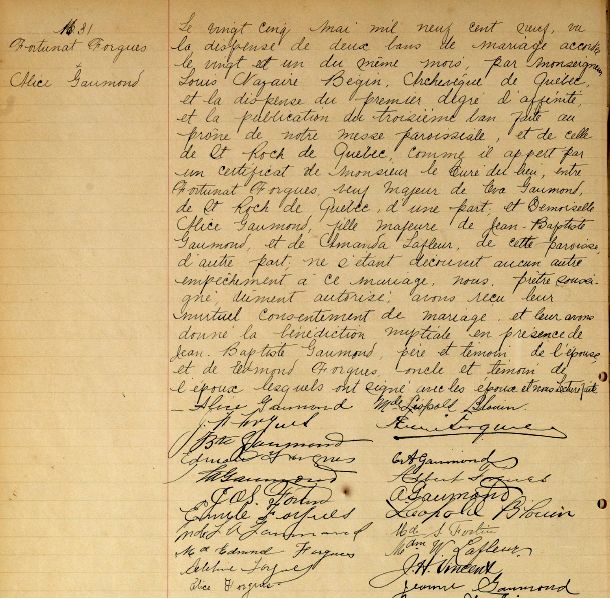 M 31
Fortunat Forgues
&
Alice Gaumond
Le vingt cinq mai mil neuf cent neuf, vu
la dispense de deux bans de mariage accordée
le vingt et un du même mois, par Monseigneur
Louis Nazaire Bégin, Archevêque de Québec,
et la dispense du premier degré d'affinité,
et la publication du troisième ban faite au
prône de notre messe paroissiale, et de celle
de St Roch de Québec, comme il appert par
un certificat de Monsieur le Curé du lieu, entre
Fortunat Forgues, veuf majeur de Eva Gaumond,
de St Roch de Québec, d'une part, et Demoiselle
Alice Gaumond, fille majeure de Jean-Baptiste
Gaumond, et de Amanda Lafleur, de cette paroisse
d'autre part; ne s'étant découvert aucun autre
empêchement à ce mariage, nous, prêtre soussi-
gné, dument autorisé, avons reçu leur
mutuel consentement de mariage et leur avons
donné la bénédiction nuptiale en présence de
Jean-Baptiste Gaumond, père et témoin de l'épouse
et de Edmond Forgues, oncle et témoin de
l'époux lesquels ont signé avec les époux et nous Lecture faite.
Alice Gaumond Mde Léopold Blouin
J. F. Forgues
Bte Gaumond
Edmond Forgues C A Gaumond
M Gaumond Albert Forgues
A Gaumond
Emile Forgues Léopold Blouin
Mde L A Gaumond Mde S. Fortin
Md Edmond Forgues Mdm W Lafleur
Forgues J. H. Vincent
Alice Forgues Jeanne Gaumond